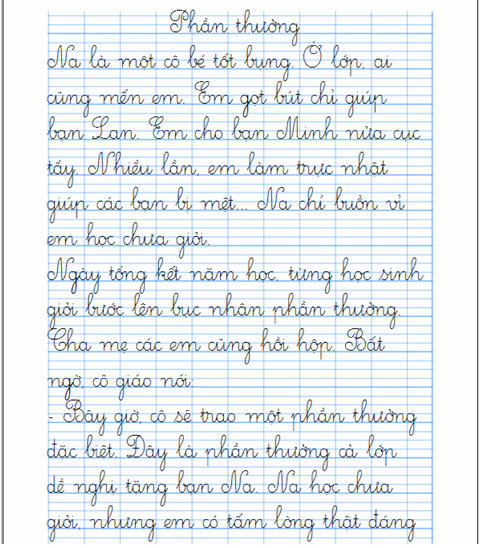 Phần thưởng
Na là một cô bé tốt bụng. Ở lớp, ai
cũng mến em. Em gọt bút chì giúp
bạn Lan. Em cho bạn Minh nửa cục
tẩy. Nhiều lần, em làm trực nhật
giúp các bạn bị mệt... Na chỉ buồn vì
em học chưa giỏi.
Ngày tổng kết năm học, từng học sinh
giỏi bước lên bục nhận phần thưởng.
Cha mẹ các em cũng hồi hộp. Bất
ngờ, cô giáo nói:
- Bây giờ, cô sẽ trao một phần thưởng
đặc biệt. Đây là phần thưởng cả lớp
đề nghị tặng bạn Na. Na học chưa
giỏi, nhưng em có tấm lòng thật đáng